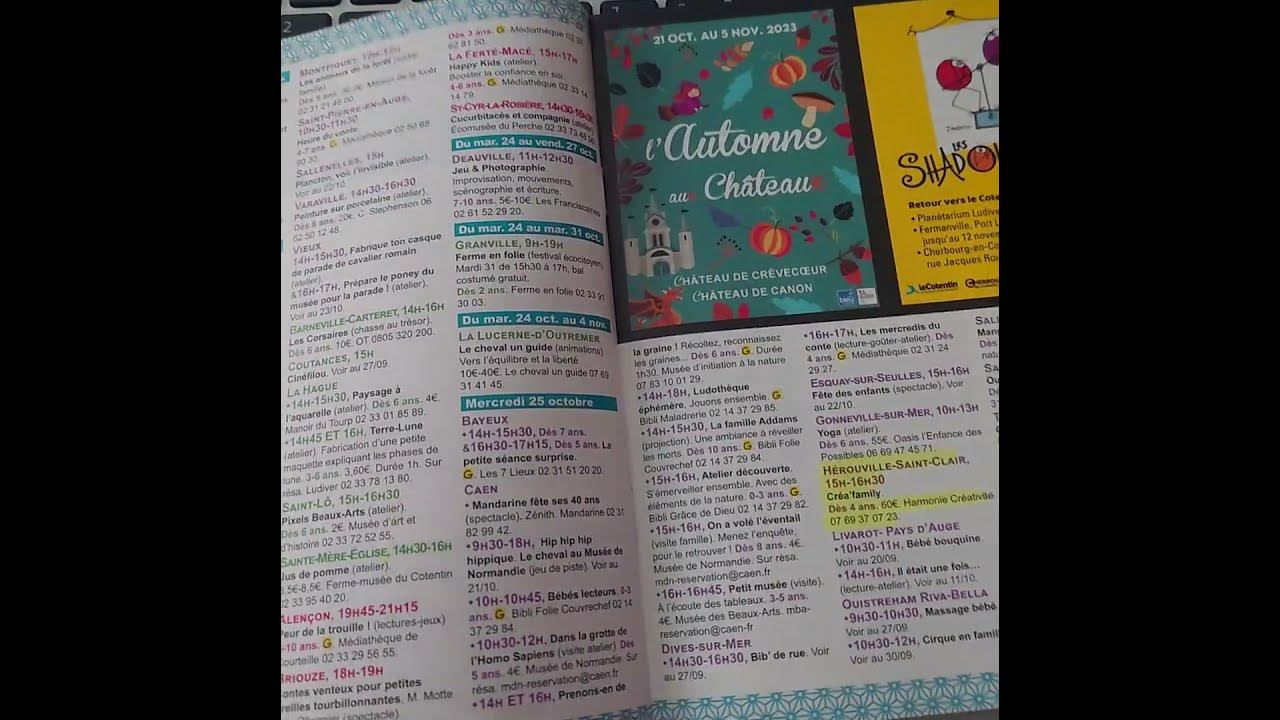 MONTPIQUET, 10H-12H
Les animaux de la forêt
famille).
Dès 5 ans. Maison de la forêt
02 31 21 46 00.
SAINT-PIERRE-EN-AUGE,
10H30-11H30
Heure du conte.
4-7 ans. G. Médiathèque 02 50 68
90 30.
SALLENELLES, 15H
Plancton, voir l'invisible (atelier).
Voir au 22/10.
VARAVILLE, 14H30-16H30
Peinture sur porcelaine (atelier).
Dès 6 ans. 20€. C Stephenson 06
62 50 12 48.
VIEUX
14H-15H30, Fabrique ton casque
de parade de cavalier romain
(atelier).
&16H-17H, Prépare le poney du
musée pour la parade ! (atelier).
Voir au 23/10.
BARNEVILLE-CARTERET, 14H-16H
Les Corsaires (chasse au trésor).
Dès 6 ans. 10€. OT 0805 320 200.
COUTANCES, 15H
Cinéfilou. Voir au 27/09.
LA HAGUE
•14H-15H30, Paysage à
l'aquarelle (atelier). Dès 6 ans. 4€.
Manoir du Tourp 02 33 01 85 89.
•14H45 ET 16H, Terre-Lune
(atelier). Fabrication d'une petite
maquette expliquant les phases de
lune. 3-6 ans. 3,60€. Durée 1h. Sur
résa. Ludiver 02 33 78 13 80.
SAINT-LÔ, 15H-16H30
Pixels Beaux-Arts (atelier).
Dès 6 ans. 2€. Musée d'art et
d'histoire 02 33 72 52 55.
SAINTE-MÈRE-ÉGLISE, 14H30-16H
Jus de pomme (atelier).
6,5€-8,5€. Ferme-musée du Cotentin
02 33 95 40 20.
ALENÇON, 19H45-21H15
Peur de la trouille ! (lectures-jeux)
-10 ans. G. Médiathèque de
Courteille 02 33 29 56 55.
BRIOUZE, 18H-19H
Contes venteux pour petites
oreilles tourbillonnantes. M. Motte
(spectacle)
Dès 3 ans. G. Médiathèque 02 33
62 81 50.
LA FERTÉ-MACÉ, 15H-17H
Happy Kids (atelier).
Booster la confiance en soi.
4-6 ans. G. Médiathèque 02 33 14
14 79.
ST-CYR-LA-ROSIÈRE, 14H30-16H30
Cucurbitacés et compagnie (atelier)
Écomusée du Perche 02 33 73 48 06
Du mar. 24 au vend. 27 oct.
DEAUVILLE, 11H-12H30
Jeu & Photographie
Improvisation, mouvements,
scénographie et écriture.
7-10 ans. 5€-10€. Les Franciscaines
02 61 52 29 20.
Du mar. 24 au mar. 31 oct.
GRANVILLE, 9H-19H
Ferme en folie (festival écocitoyen).
Mardi 31 de 15h30 à 17h, bal
costumé gratuit.
Dès 2 ans. Ferme en folie 02 33 91
30 03.
Du mar. 24 oct. au 4 nov.
LA LUCERNE-D'OUTREMER
Le cheval un guide (animations)
Vers l'équilibre et la liberté
10€-40€. Le cheval un guide 07 69
31 41 45.
Mercredi 25 octobre
BAYEUX
•14H-15H30, Dès 7 ans.
&16H30-17H15, Dès 5 ans. La
petite séance surprise.
G. Les 7 Lieux 02 31 51 20 20.
CAEN
• Mandarine fête ses 40 ans
(spectacle). Zénith. Mandarine 02 31
82 99 42.
•9H30-18H, Hip hip hip
hippique. Le cheval au Musée de
Normandie (jeu de piste). Voir au
21/10.
•10H-10H45, Bébés lecteurs. 0-3
ans. G. Bibli Folie Couvrechef 02 14
37 29 84.
•10H30-12H, Dans la grotte de
l'Homo Sapiens (visite atelier) Dès
5 ans. 4€. Musée de Normandie. Sur
résa. mdn-reservation@caen.fr
•14H ET 16H, Prenons-en de
21 OCT. AU 5 NOV. 2023
l'Automne
aux Châteaux
CHÂTEAU DE CRÈVECŒUR
CHÂTEAU DE CANON
bleu
LES
SHADOK
Retour vers le Cote
• Planétarium Ludive
• Fermanville, Port L
jusqu'au 12 novem
• Cherbourg-en-Co
rue Jacques Rou
leCotentin
la graine ! Récoltez, reconnaissez
les graines... Dès 6 ans. G. Durée
1h30. Musée d'initiation à la nature
07 83 10 01 29.
•14H-18H, Ludothèque
éphémère. Jouons ensemble. G.
Bibli Maladrerie 02 14 37 29 85.
•14H-15H30, La famille Addams
(projection). Une ambiance à réveiller
les morts. Dès 10 ans. G. Bibli Folie
Couvrechef 02 14 37 29 84.
•15H-16H, Atelier découverte.
S'émerveiller ensemble. Avec des
éléments de la nature. 0-3 ans. G.
Bibli Grâce de Dieu 02 14 37 29 82.
•15H-16H, On a volé l'éventail
(visite famille). Menez l'enquête,
pour le retrouver ! Dès 8 ans. 4€.
Musée de Normandie. Sur résa.
mdn-reservation@caen.fr
•16H-16H45, Petit musée (visite).
À l'écoute des tableaux. 3-5 ans.
4€. Musée des Beaux-Arts. mba-
reservation@caen-fr
DIVES-SUR-MER
•14H30-16H30, Bib' de rue. Voir
au 27/09.
•16H-17H, Les mercredis du
conte (lecture-goûter-atelier). Dès
4 ans. G. Médiathèque 02 31 24
29 27.
ESQUAY-SUR-SEULLES, 15H-16H
Fête des enfants (spectacle). Voir
au 22/10.
GONNEVILLE-SUR-MER, 10H-13H
Yoga (atelier).
Dès 6 ans. 55€. Oasis l'Enfance des
Possibles 06 69 47 45 71.
HÉROUVILLE-SAINT-CLAIR,
15H-16H30
Créa'family.
Dès 4 ans. 60€. Harmonie Créativité
07 69 37 07 23.
LIVAROT- PAYS D'AUGE
•10H30-11H, Bébé bouquine.
Voir au 20/09.
•14H-16H, Il était une fois...
(lecture-atelier). Voir au 11/10.
OUISTREHAM RIVA-BELLA
•9H30-10H30, Massage bébé
Voir au 27/09.
•10H30-12H, Cirque en famille
Voir au 30/09.